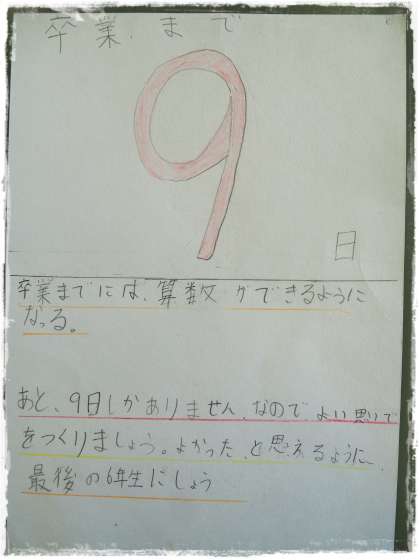 卒業まで
9
日
卒業までには、算数ができるように
なっる。
あと、9日しかありません、なので、よい思いで
をつくりましょう。よかった、と思えるように、
最後の6年生にしょう